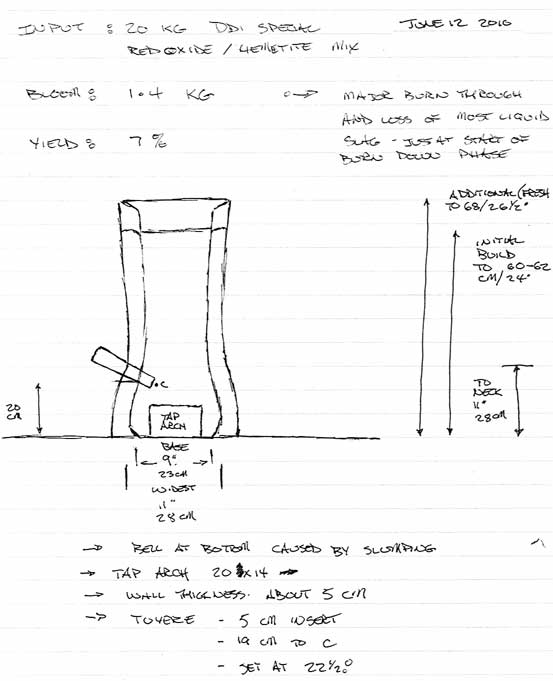 INPUT : 20 KG DDI SPECIAL
JUNE 12 2010
RED OXIDE / HEMETITE MIX
BLOOM : 1.4 KG → MAJOR BURN THROUGH
AND LOSS OF MOST LIQUID
YIELD : 7 % SLAG - JUST AT START OF
BURN DOWN PHASE
ADDITIONAL (FRESH
TO 68/26½"
INITIAL
BUILD
TO 60-62
CM/24"
20
CM
C
TAP
ARCH
TO
NECK
11"
28CM
BASE
9"
23CM
WIDEST
11"
28CM
→ BELL AT BOTTOM CAUSED BY SLUMPING
→ TAP ARCH 20 x 14
→ WALL THICKNESS. ABOUT 5 CM
→ TUYERE - 5 CM INSERT
- 19 CM TO C
- SET AT 22½°